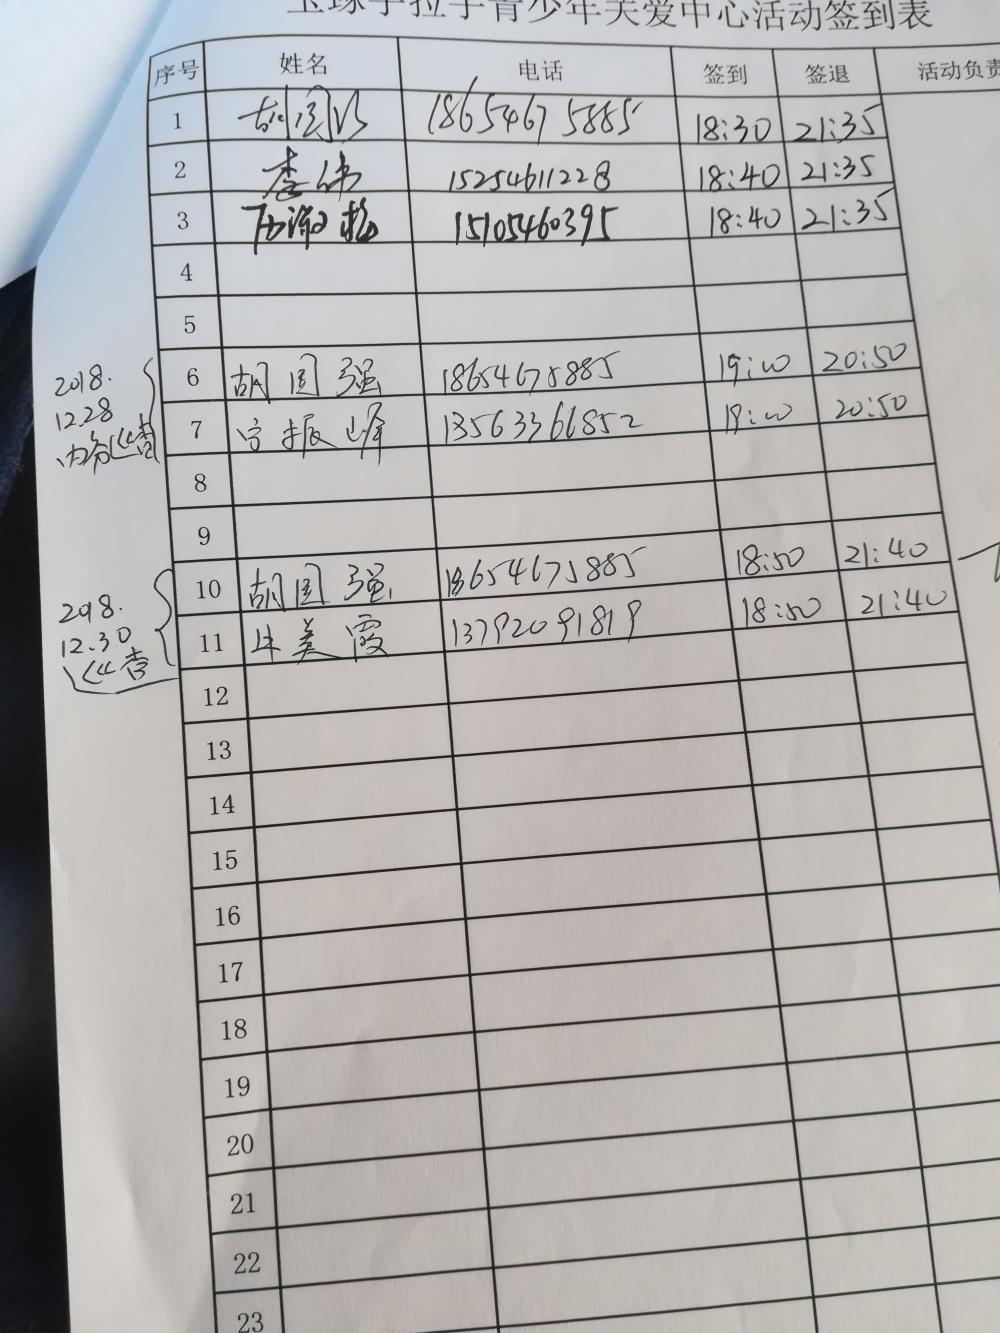 手拉手青少年关爱中心活动签到表
序号 姓名 电话 签到 签退 活动负责
1 胡国强 18654675885 18:30 21:35
2 李伟 15254611228 18:40 21:35
3 15105460395 18:40 21:35
4
5
2018.
12.28
内务巡查
6 胡国强 18654675885 19:00 20:50
7 宫振峰 13563366852 19:00 20:50
8
9
2018.
12.30
巡查
10 胡国强 18654675885 18:50 21:40
11 美霞 13792091819 18:50 21:40
12
13
14
15
16
17
18
19
20
21
22
23